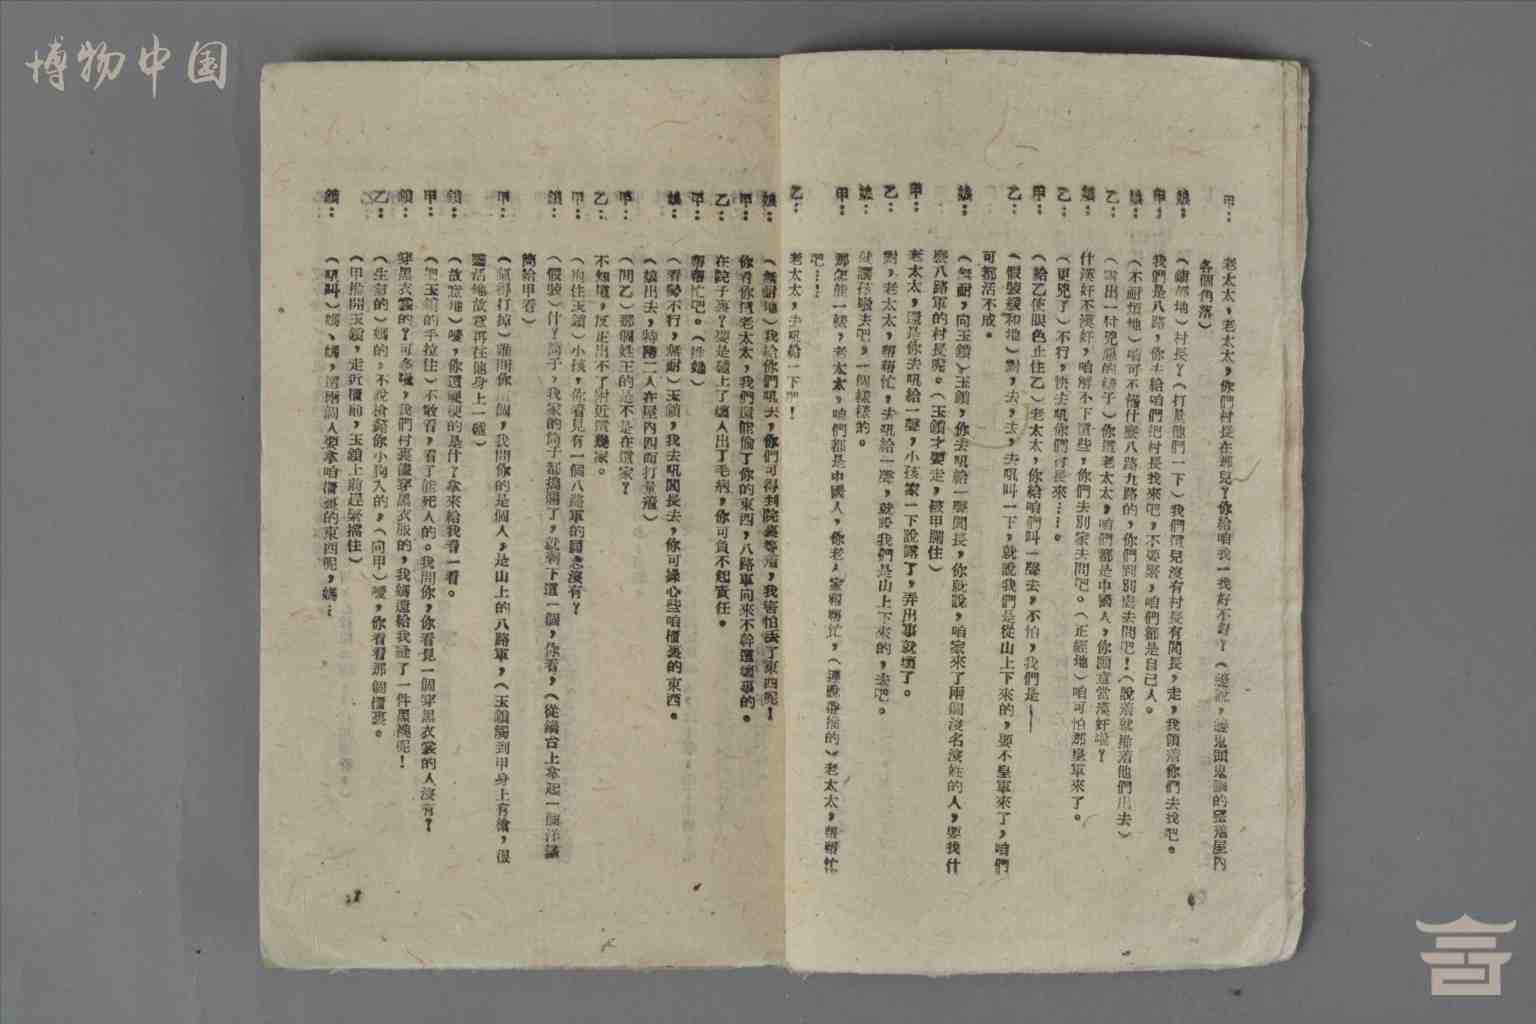 博物中国
甲：老太太，老太太，你們村長在那兒？你給咱找一找好不好？（邊說，邊鬼頭鬼腦的望着屋內
各個角落）
娘：（鎮靜地）村長？（打量他們一下）我們這兒沒有村長有閭長，走，我領着你們去找吧。
甲：我們是八路，你去給咱們把村長找來吧，不要緊，咱們都是自己人。
娘：（不耐煩地）咱可不懂什麼八路九路的，你們到別處去問吧！（說着就推着他們出去）
乙：（露出一付兇惡的樣子）你這老太太，咱們都是中國人，你願意當漢奸嗎？
娘：什漢奸不漢奸，咱解不下這些，你們去別家去問吧。（正經地）咱可怕那皇軍來了。
乙：（更兇了）不行，快去吼你們村長來……。
甲：（給乙使眼色止住乙）老太太，你給咱們叫一聲去，不怕，我們是——
乙：（假裝緩和地）對，去，去，去吼叫一下，就說我們是從山上下來的，要不皇軍來了，咱們
可都活不成。
娘：（無耐，向玉鎖）玉鎖，你去吼給一聲閭長，你就說，咱家來了兩個沒名沒姓的人，要找什
麼八路軍的村長呢。（玉鎖才要走，被甲攔住）
甲：老太太，還是你去吼給一聲，小孩家一下說露了，弄出事就壞了。
乙：對，老太太，幫幫忙，去吼給一聲，就說我們是山上下來的，去吧。
娘：就讓孩嗷去吧，一個樣樣的。
甲：那怎能一樣，老太太，咱們都是中國人，你老人家幫幫忙，（連說帶推的）老太太，幫幫忙
吧…！
乙：老太太，去吼給一下吧！
娘：（無耐地）我給你們吼去，你們可得到院裏等着，我害怕丟了東西呢！
甲：你看你這老太太，我們還能偷了你的東西，八路軍向來不幹這壞事的。
乙：在院子裏？要是碰上了壞人出了毛病，你可負不起責任。
甲：幫幫忙吧。（推娘）
娘：（看勢不行，無耐）玉鎖，我去吼閭長去，你可操心些咱櫃裏的東西。
（娘出去，特務二人在屋內四面打量着）
甲：（問乙）那個姓王的是不是在這家？
乙：不知道，反正出不了附近這幾家。
甲：（抱住玉鎖）小孩，你看見有一個八路軍的同志沒有？
鎖：（假裝）什？筒子，我家的筒子都搗爛了，就剩下這一個，你看，（從鍋台上拿起一個洋鐵
筒給甲看）
甲：（氣得打掉）誰問你這個，我問你的是個人，是山上的八路軍，（玉鎖觸到甲身上有槍，很
靈活地故意再在他身上一碰）
鎖：（故意地）噯，你這硬硬的是什？拿來給我看一看。
甲：（把玉鎖的手拉住）不敢看，看了能死人的。我問你，你看見一個穿黑衣裳的人沒有？
鎖：穿黑衣裳的？可多哩，我們村裏儘穿黑衣服的，我媽還給我縫了一件黑襖呢！
乙：（生氣的）媽的，不說搶斃你小狗入的，（向甲）噯，你看看那個櫃裏。
（甲推開玉鎖，走近櫃前，玉鎖上前趕緊擋住）
鎖：（吼叫）媽、媽，這兩個人要拿咱櫃裏的東西呢，媽…